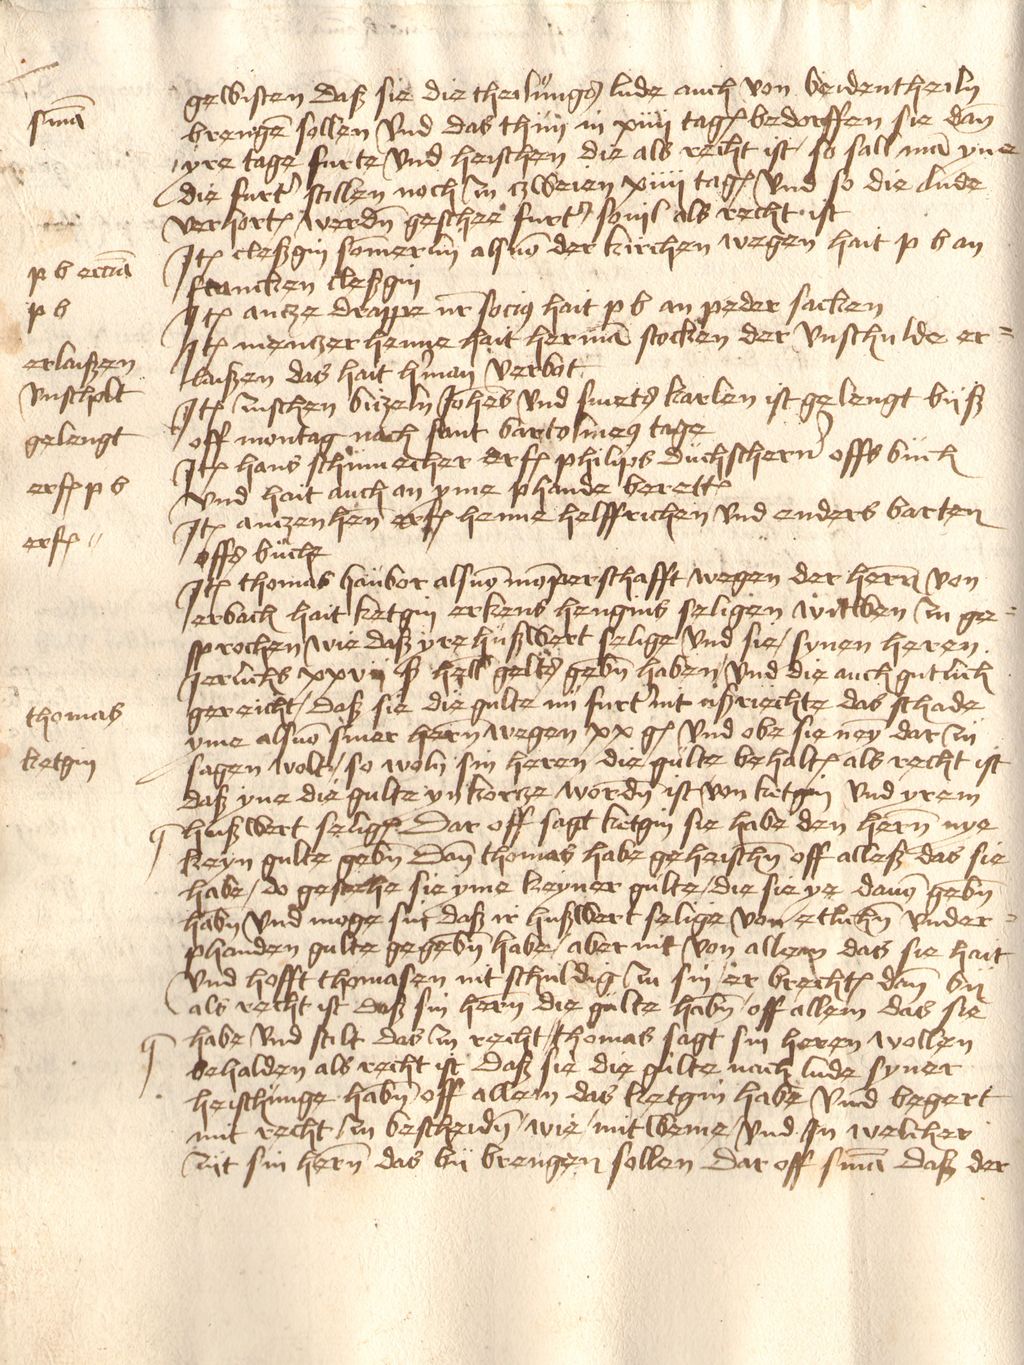 gewisten daß sie die theilungs lude auch von beidentheiln
sniā
brengē sollen Vnd das thun in xiiii tagē bedorffen sie dan
yre tage furte Vnd heischen die als recht ist / so sall mā yne
die furt' stillen noch zu zweien xiiii tagē Vnd so die lude
verhortē werdn̄ geschee furt' souil als recht ist
Itē cleßgin somerün alsuō der kirchen wegen hait p b an
p b ecctiā
francken cleßgin
Itē antze drappe nr̄ socius hait p b an peder sacken
p b
Itē mentzer henne hait hermā stocken der vnschulde er=
erlaißen
laißen das hait hman verbot
vnscholt
Itē zuschen butzeln Johes vnd smets karlen ist gelengt biß
gelengt
off montag nach sant bartolmeus tage
Itē hans schümecher erfē philips duchscherer offs buch
erfē p b
Vnd hait auch an yme phande berettē
Itē antzenhen erfē henne helffrichen vnd enders barten
erfē "
offs büche
Itē thomas haubor alsuō mōperschafft wegen der herrn von
erbach hait ketgin erkens hengins seligen witwen zu ge=
sprochen wie daß yre hußwert selige vnd sie / synen heren
Ierlichs xxvii ß hell' geltes gebn̄ haben / Vnd die auch gutlich
gereicht / daß sie die gulte nü furt' nit ußriechte das schade
thomas
yme alsuō siner hern wegen xx gē Vnd obe sie ney dar zu
ketgin
sagen wolt / so woln sin heren die gulte behaltē als recht ist
daß yne die gulte yn kortze wordn̄ ist von ketgin vnd yrem
hußwert seligē Dar off sagt ketgin sie habe den hern nye
keyn gulte gebn̄ Dan thomas habe geheischn̄ off alleß das sie
habe / do gestehe sie yme keyner gulte / die sie ye dauō gebn̄
habn̄ Vnd moge sin daß ir hußwert selige von etlichn̄ vnder=
phanden gulte gegebn̄ habe / aber nit von allem das sie hait
Vnd hofft thomasen nit schuldig zu sin / er brechtē dan bij
als recht ist daß sin hern die gulte habn̄ / off allem das sie
habe / Vnd stilt das zu recht / thomas sagt sin heren wollen
behalden als recht ist Daß sie die gulte nach lude syner
heischunge habn̄ off allem das ketgin habe Vnd begert
mit recht zu bescheidn̄ / wie / mit weme / Vnd In welcher
zijt sin hern das bij brengen sollen Dar off sniā daß der